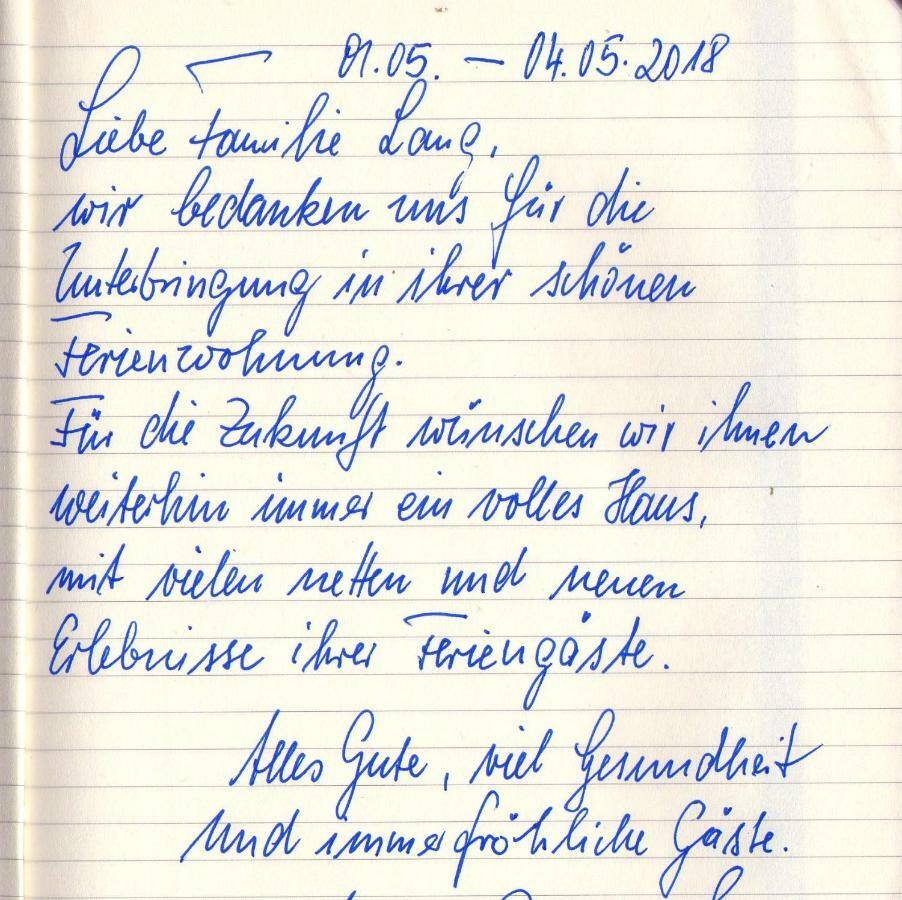 01.05. – 04.05.2018
Liebe Familie Lang,
wir bedanken uns für die
Unterbringung in ihrer schönen
Ferienwohnung.
Für die Zukunft wünschen wir ihnen
weiterhin immer ein volles Haus,
mit vielen netten und neuen
Erlebnisse ihrer Feriengäste.
Alles Gute, viel Gesundheit
und immer fröhliche Gäste.